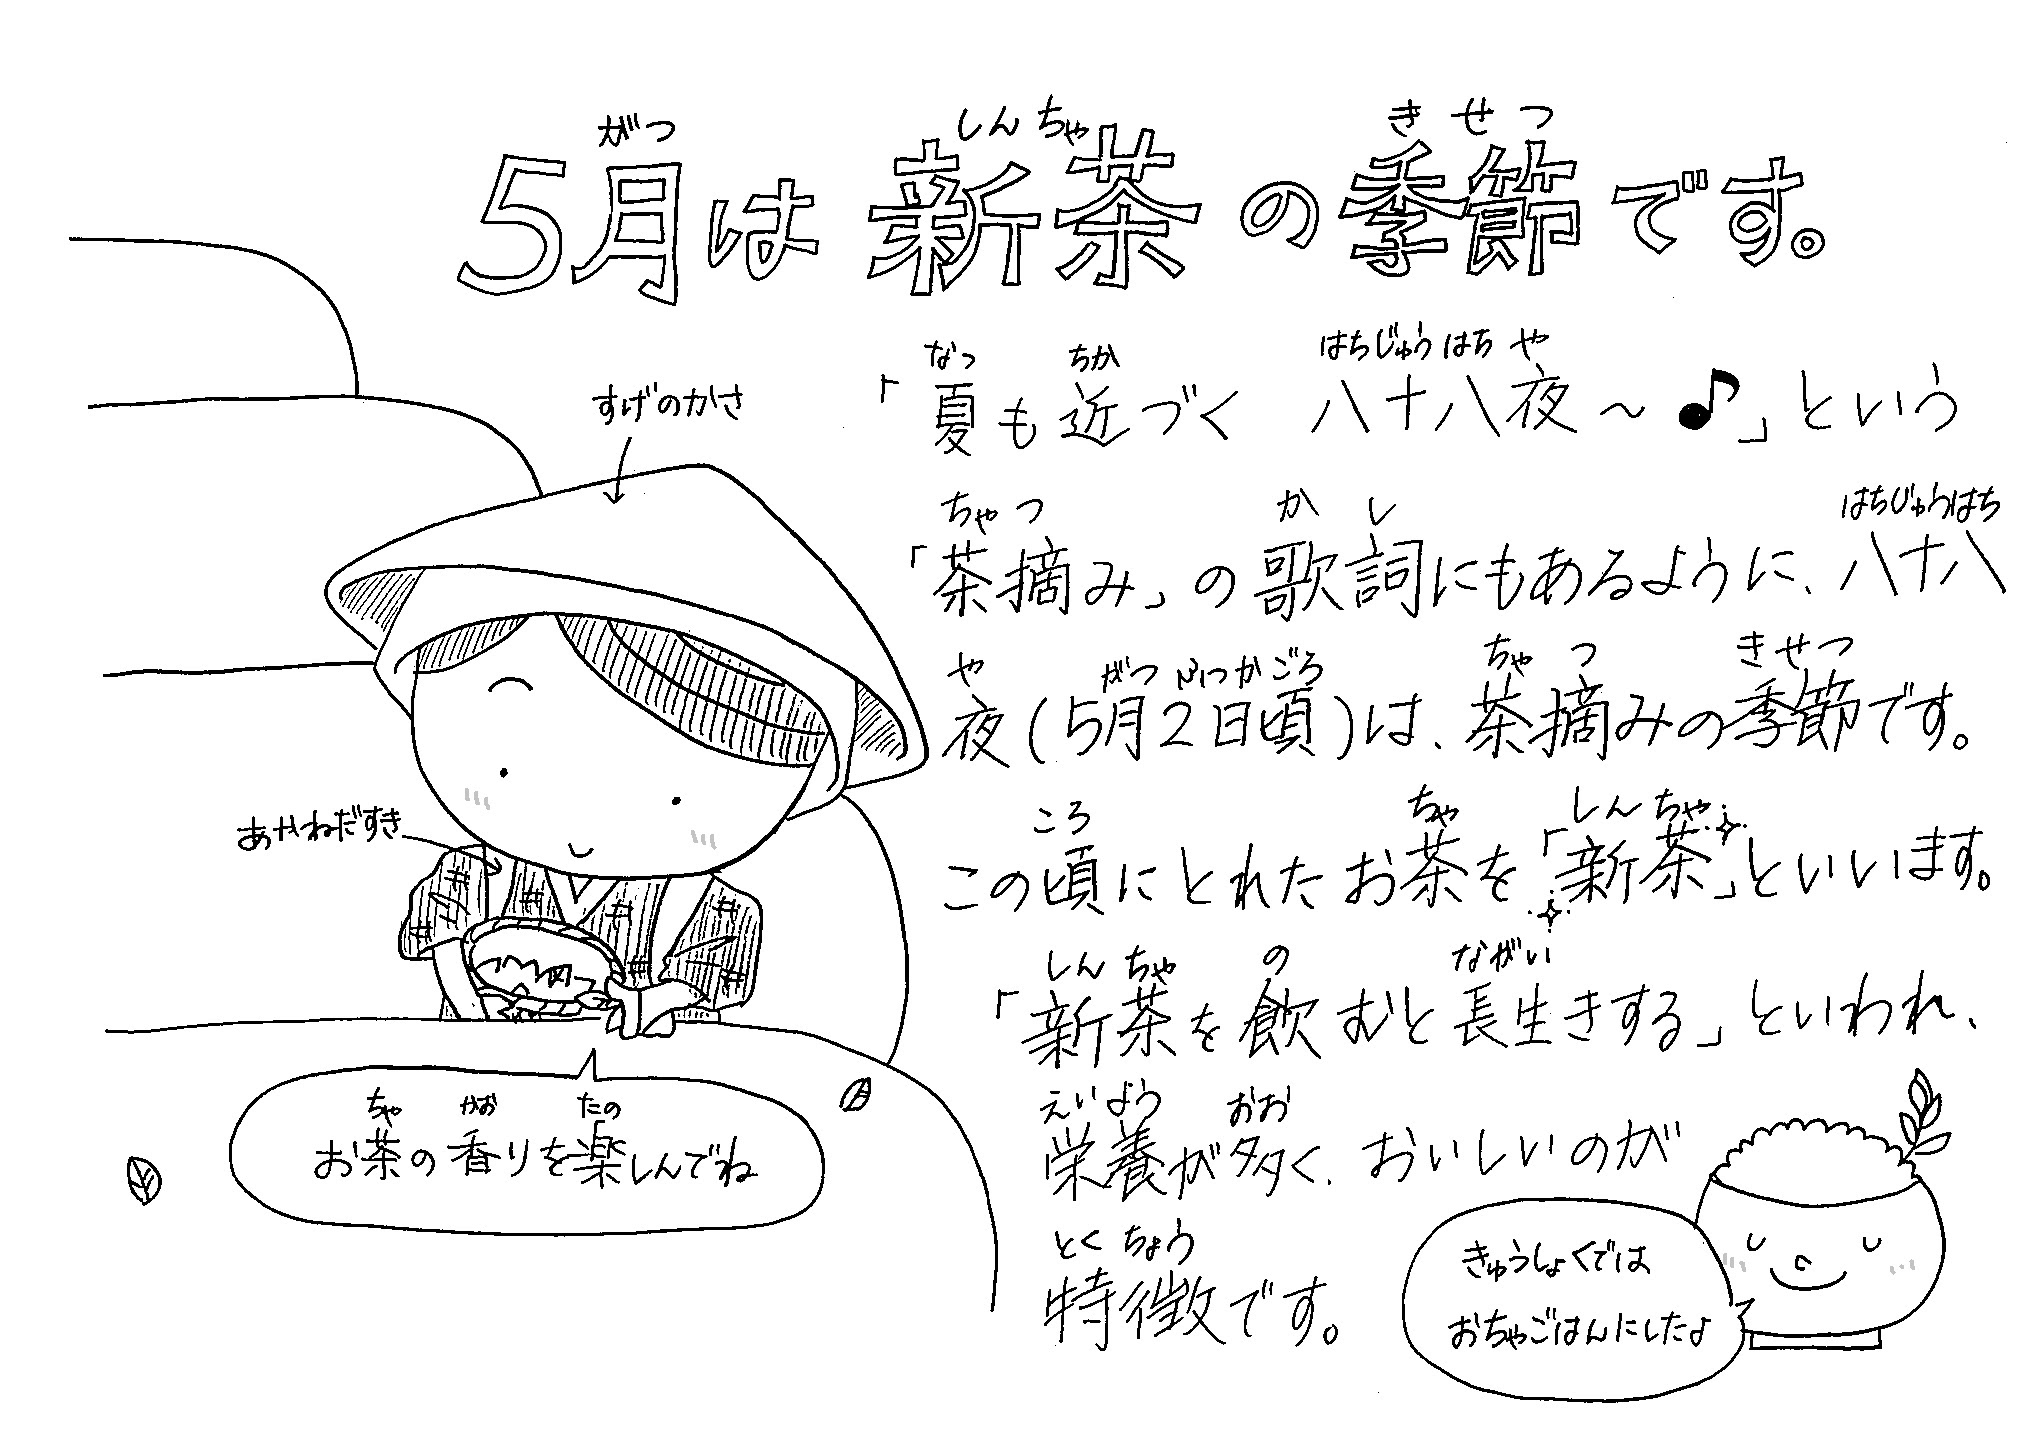 5月は新茶の季節です。
がつ しんちゃ きせつ
なつ ちか はちじゅうはちや
「夏も近づく 八十八夜～♪」という
ちゃつ かし はちじゅうはち
「茶摘み」の歌詞にもあるように、八十八
や がつ ふつかごろ ちゃつ きせつ
夜(5月2日頃)は、茶摘みの季節です。
ころ ちゃ しんちゃ
この頃にとれたお茶を「新茶」といいます。
しんちゃ の ながい
「新茶を飲むと長生きする」といわれ、
えいよう おお
栄養が多く、おいしいのが
とくちょう
特徴です。
すげのかさ
あかねだすき
ちゃ かお たの
お茶の香りを楽しんでね
きゅうしょくでは
おちゃごはんにしたよ